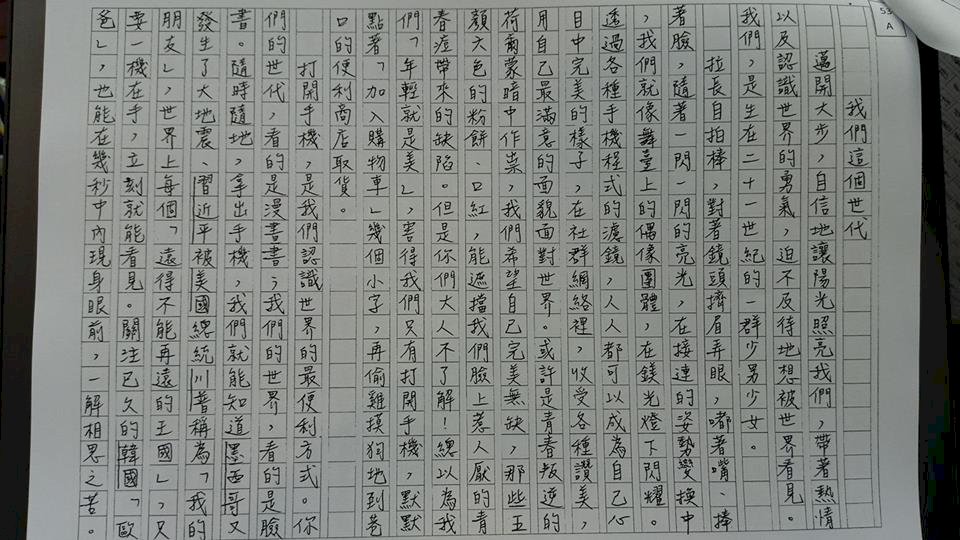 我們這個世代
邁開大步,自信地讓陽光照亮我們,帶著熱情
以及認識世界的勇氣,迫不及待地想被世界看見。
我們,是生在二十一世紀的一群少男少女。
拉長自拍棒,對著鏡頭擠眉弄眼,嘟著嘴、捧
著臉,隨著一閃一閃的亮光,在接連的姿勢變換中
,我們就像舞臺上的偶像團體,在鎂光燈下閃耀。
透過各種手機程式的濾鏡,人人都可以成為自己心
目中完美的樣子,在社群網絡裡,收受各種讚美,
用自己最滿意的面貌面對世界。或許是青春叛逆的
荷爾蒙暗中作祟,我們希望自己完美無缺,那些五
顏六色的粉餅、口紅,能遮擋我們臉上惹人厭的青
春痘帶來的缺陷。但是你們大人不了解!總以為我
們「年輕就是美」,害得我們只有打開手機,默默
點著「加入購物車」幾個小字,再偷雞摸狗地到巷
口的便利商店取貨。
打開手機,是我們認識世界的最便利方式。你
們的世代,看的是漫畫書;我們的世界,看的是臉
書。隨時隨地,拿出手機,我們就能知道墨西哥又
發生了大地震、習近平被美國總統川普稱為「我的
朋友」,世界上每個「遠得不能再遠的王國」,只
要一機在手,立刻就能看見。關注已久的韓國「歐
爸」,也能在幾秒中內現身眼前,一解相思之苦。